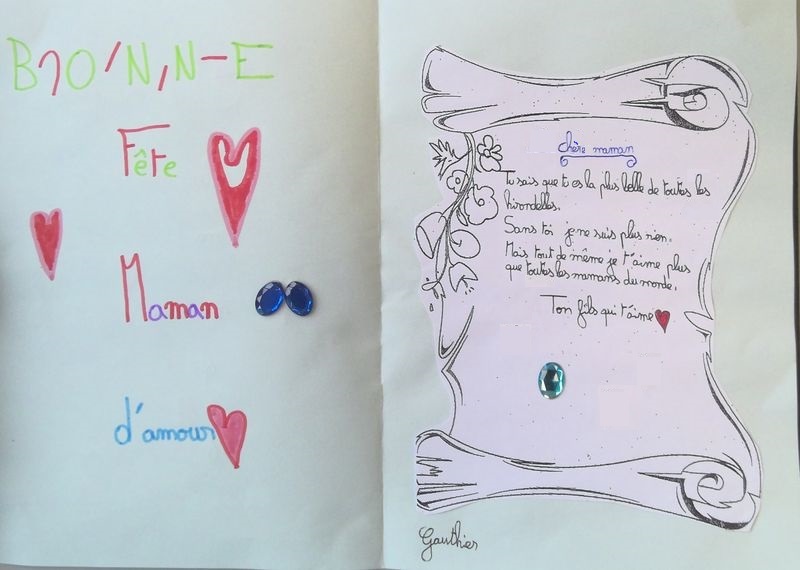 BJO'N,N-E
Fête
Maman
d'amour
chère maman
Tu sais que tu es la plus belle de toutes les
hirondelles.
Sans toi je ne suis plus rien.
Mais tout de même je t'aime plus
que toutes les mamans du monde.
Ton fils qui t'aime
Gauthier